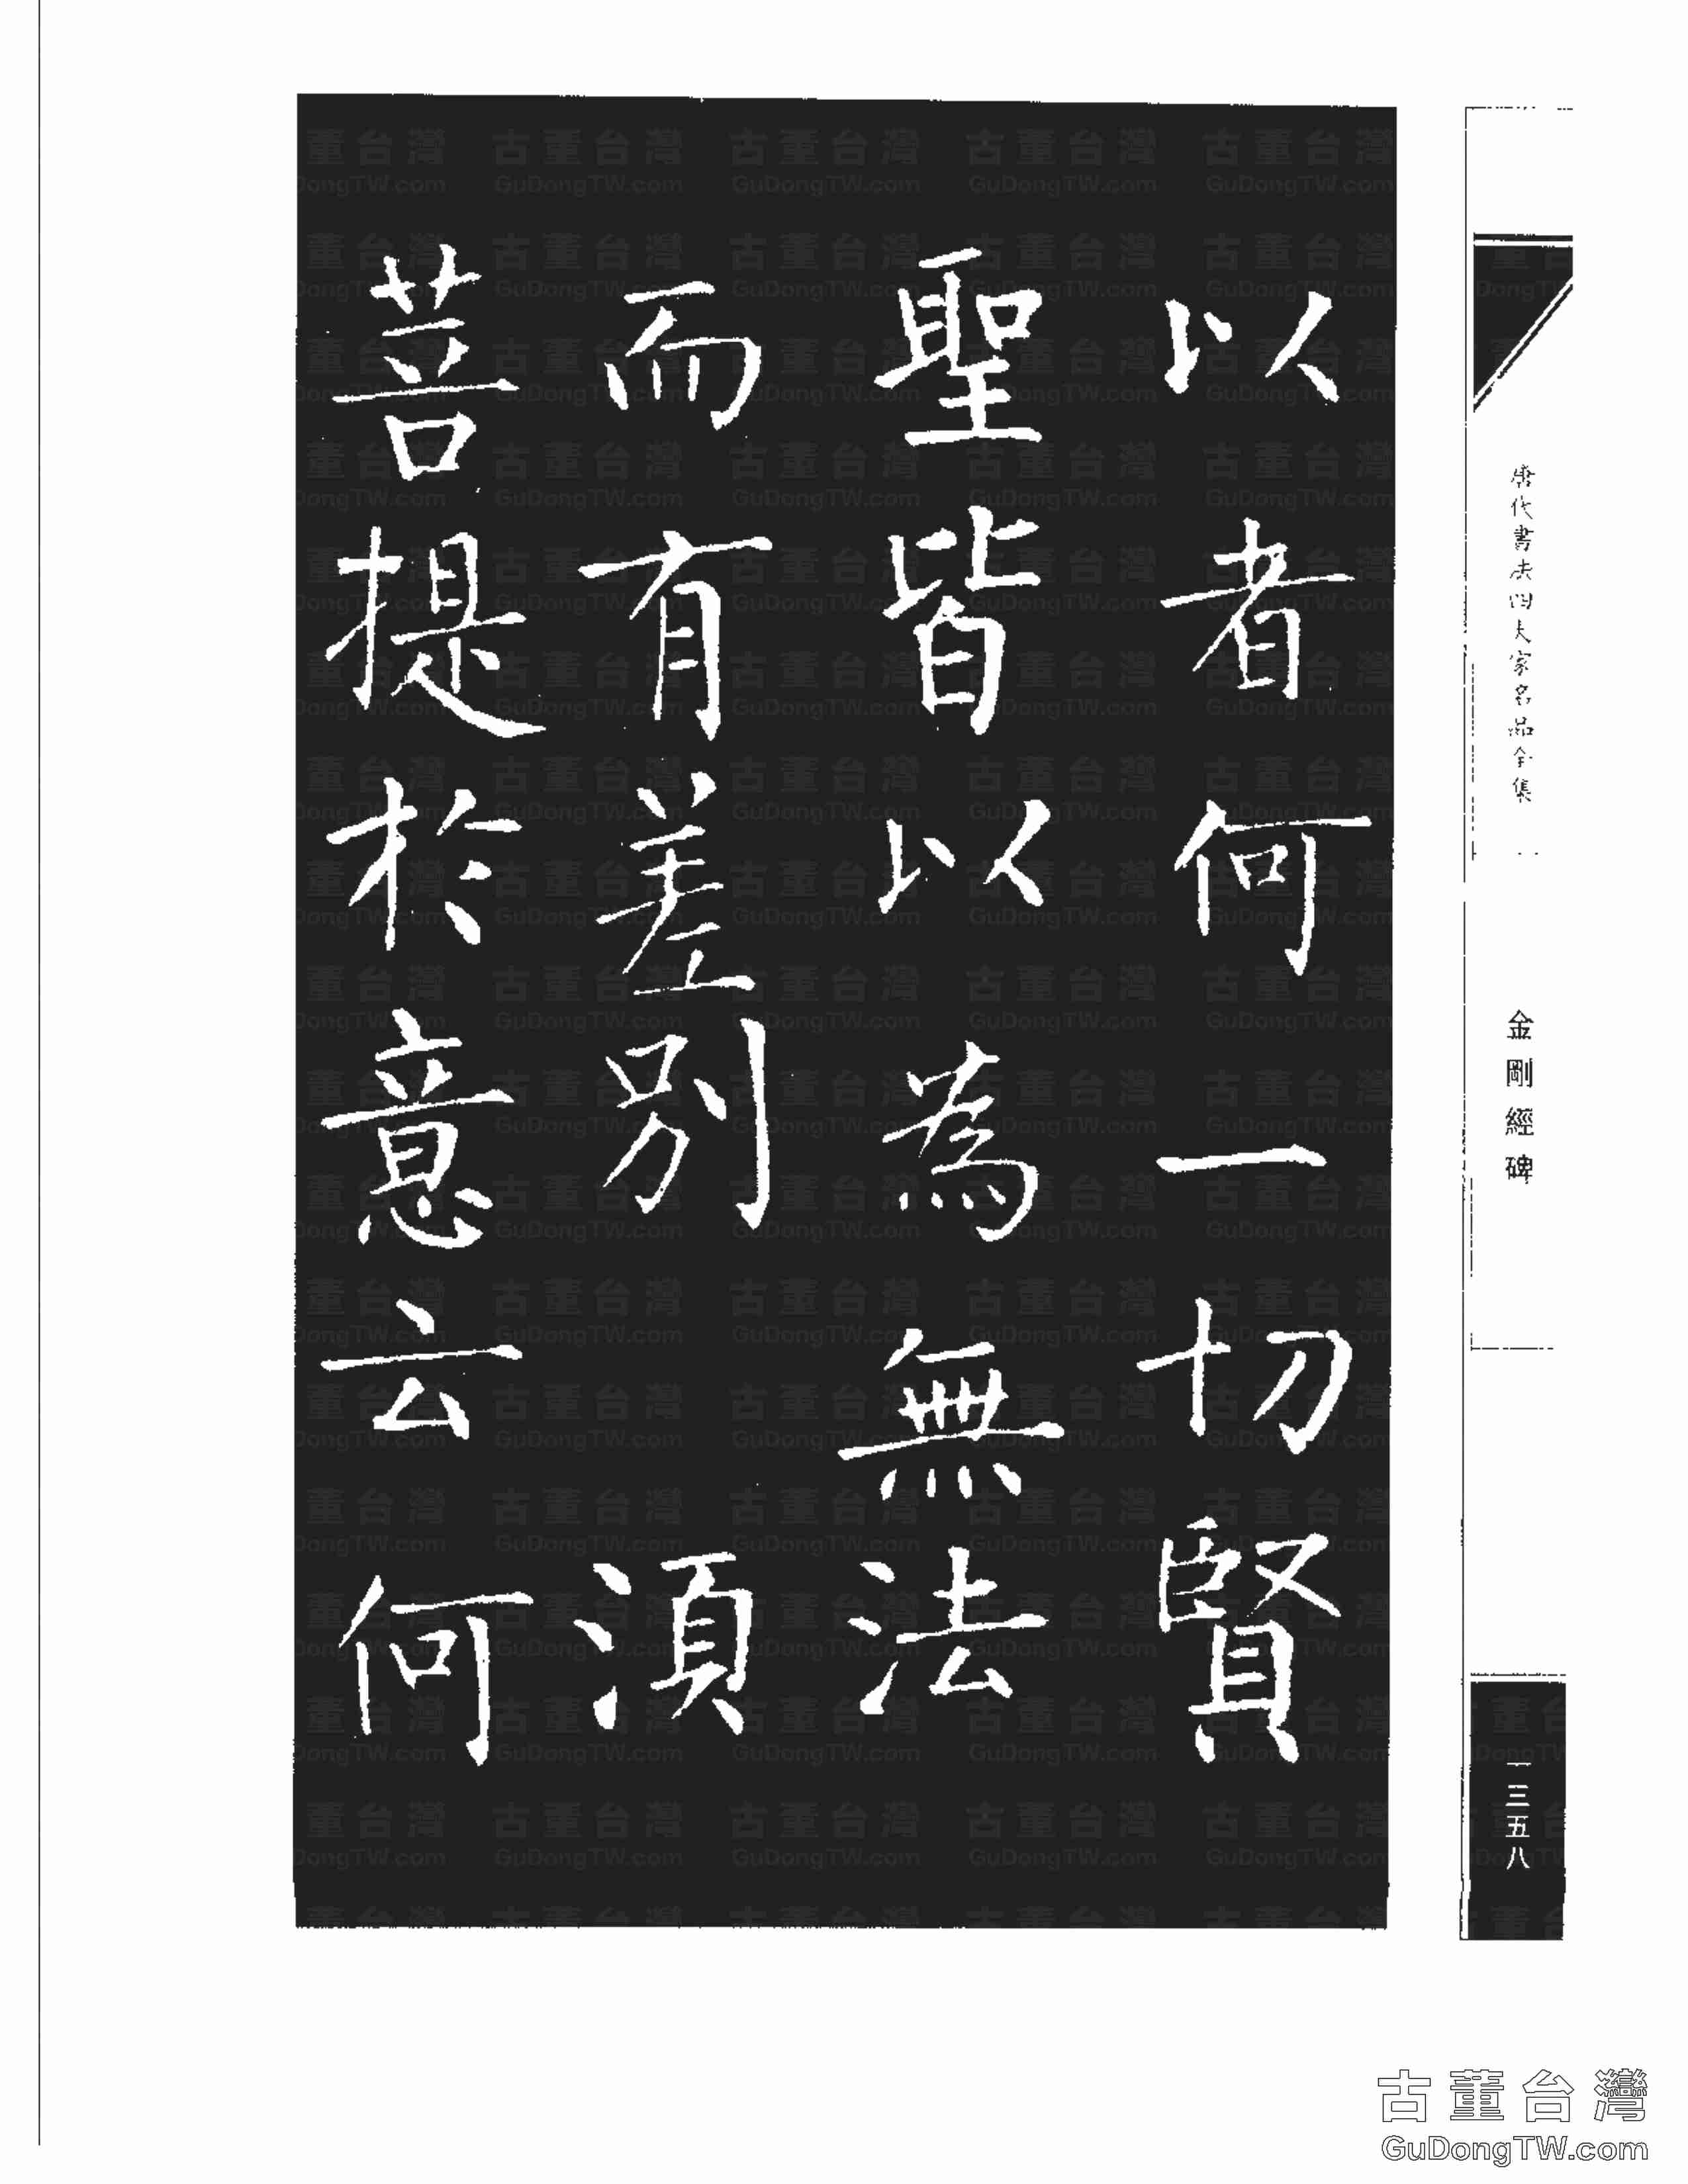 以者何一切賢
聖皆以為無法
而有差別　湏
菩提於意云何
唐代書法四大家名品全集
金剛經碑
一三五八
古董台灣
GuDongTW.com